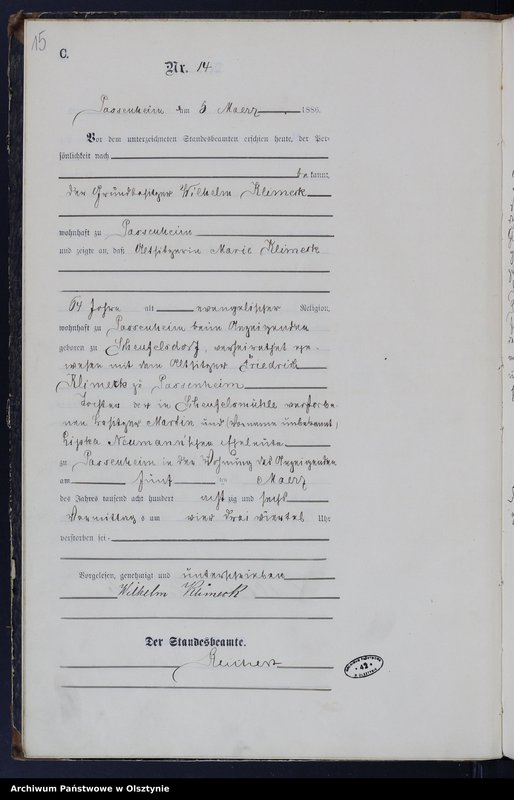 15
C.
Nr. 14
Passenheim am 6 Maerz 1886.
Vor dem unterzeichneten Standesbeamten erschien heute, der Per-
sönlichkeit nach
be kannt,
der Grundbesitzer Wilhelm Klimeck
wohnhaft zu Passenheim
und zeigte an, daß Altsitzerin Marie Klimeck
64 Jahre alt evangelischer Religion,
wohnhaft zu Passenheim beim Anzeigenden
geboren zu Scheufelsdorf, verheirathet ge-
wesen mit dem Altsitzer Friedrich
Klimeck zu Passenheim
Tochter der in Scheufelsmühle verstorbe-
nen Besitzer Martin und (Vorname unbekannt)
Neumann'schen Eheleute
zu Passenheim in der Wohnung des Anzeigenden
am fünf ten Maerz
des Jahres tausend acht hundert acht zig und sechs
Vormittags um vier drei viertel Uhr
verstorben sei.
Vorgelesen, genehmigt und unterschrieben
Wilhelm Klimeck
Der Standesbeamte.
42
Archiwum Państwowe w Olsztynie